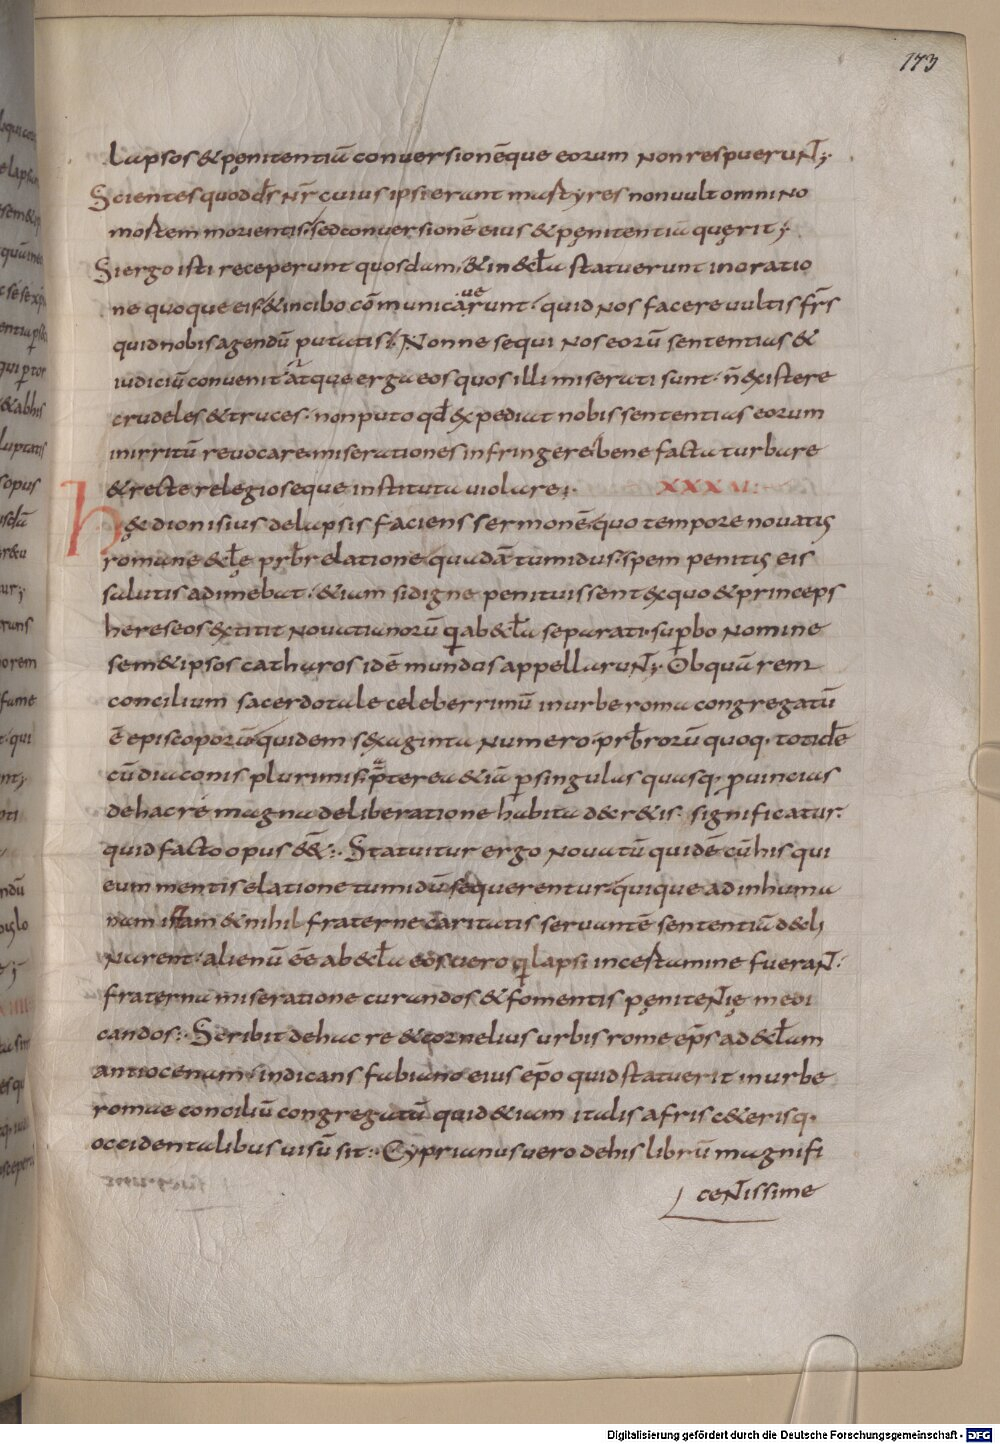 173
Lapsos & pęnitentiū conversionēque eorum non respuerunt;
Scientes quod d̄s n̄r cuius ipsi erant martyres non vult omnino
mortem morientis. sed conversionē eius & pęnitentiā quęrit;
Si ergo isti receperunt quosdam, & in ęccl̄a statuerunt in oratio
ne quoque eis & in cibo cōmunicaverunt. quid nos facere vultis fr̄s
quid nobis agendū putatis; Nonne sequi nos eorū sententias &
iudiciū convenit atque erga eos quos illi miserati sunt. n̄ existere
crudeles & truces. non puto qd̄ expediat nobis sententias eorum
in irritū revocare. miserationes infringere. bene facta turbare
& recte relegioseque instituta violare;
h&c dionisius de lapsis faciens sermonē. quo tempore novatus
romane &cl̄ę prb̄r elatione quadā tumidus. spem penitus eis
salutis adimebat. &iam si digne penituissent ex quo & princeps
hereseos extitit novatianorū qui ab &cl̄a separati. superbo nomine
sem&ipsos catharos idē mundos appellarunt; Ob quam rem
concilium sacerdotale celeberrimū in urbe roma congregatū
ē episcoporū quidem sexaginta numero. prb̄rorū quoq. totidē
cū diaconis plurimis. p̄terea &iā p singulas quasq. provincias
de hac re magna deliberatione habita decr&is. significatur.
quid facto opus ēē;. Statuitur ergo novatū quidē cū his qui
eum mentis elatione tumidū sequerentur. quique ad inhuma
nam istam & nihil fraterne caritatis servantē sententiā decli
narent. alienū ēē ab &cl̄a eos vero qui lapsi in certamine fuerant.
fraterna miseratione curandos & fomentis pęnitentię medi
candos;. Scribit de hac re & cornelius urbis rome ep̄s ad &cl̄am
antiocenam. indicans fabiano eius ep̄o quid statuerit in urbe
romae conciliū congregatū quid &iam italis afris c&erisq.
occidentalibus visū sit;. Cyprianus vero de his librū magnifi
centissime
Digitalisierung gefördert durch die Deutsche Forschungsgemeinschaft - DFG